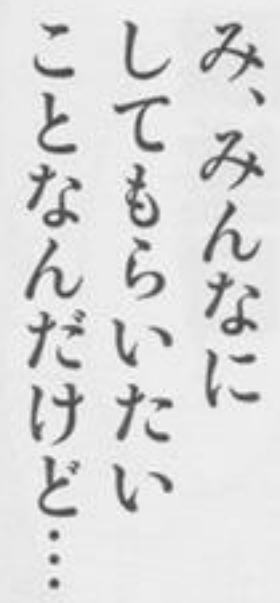 み、みんなに
してもらいたい
ことなんだけど…